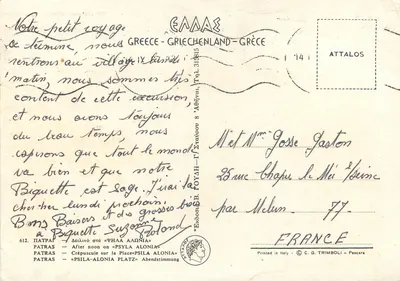 Notre petit voyage
se termine, nous
rentrons au village lundi
matin, nous sommes très
content de cette excursion,
et nous avons toujours
du beau temps, nous
espérons que tout le monde
va bien et que notre
Biquette est sage. J'irai la
chercher lundi prochain.
Bons Baisers et des grosses bises
à Biquette Suzanne
Roland
ΕΛΛΑΣ
GREECE - GRIECHENLAND - GRÈCE
ATTALOS
14
M et Mme Gosse Gaston
25 rue Chapu. Le Mée s/Seine
par Melun. 77.
FRANCE
612. ΠΑΤΡΑΙ - Δειλινό στά «ΨΗΛΑ ΑΛΩΝΙΑ»
PATRAS - After noon on «PSYLA ALONIA»
PATRAS - Crépuscule sur la Place «PSILA ALONIA»
PATRAS - «PSILA-ALONIA PLATZ» Abendstimmung
Printed in Italy - © C. G. TRIMBOLI - Pescara